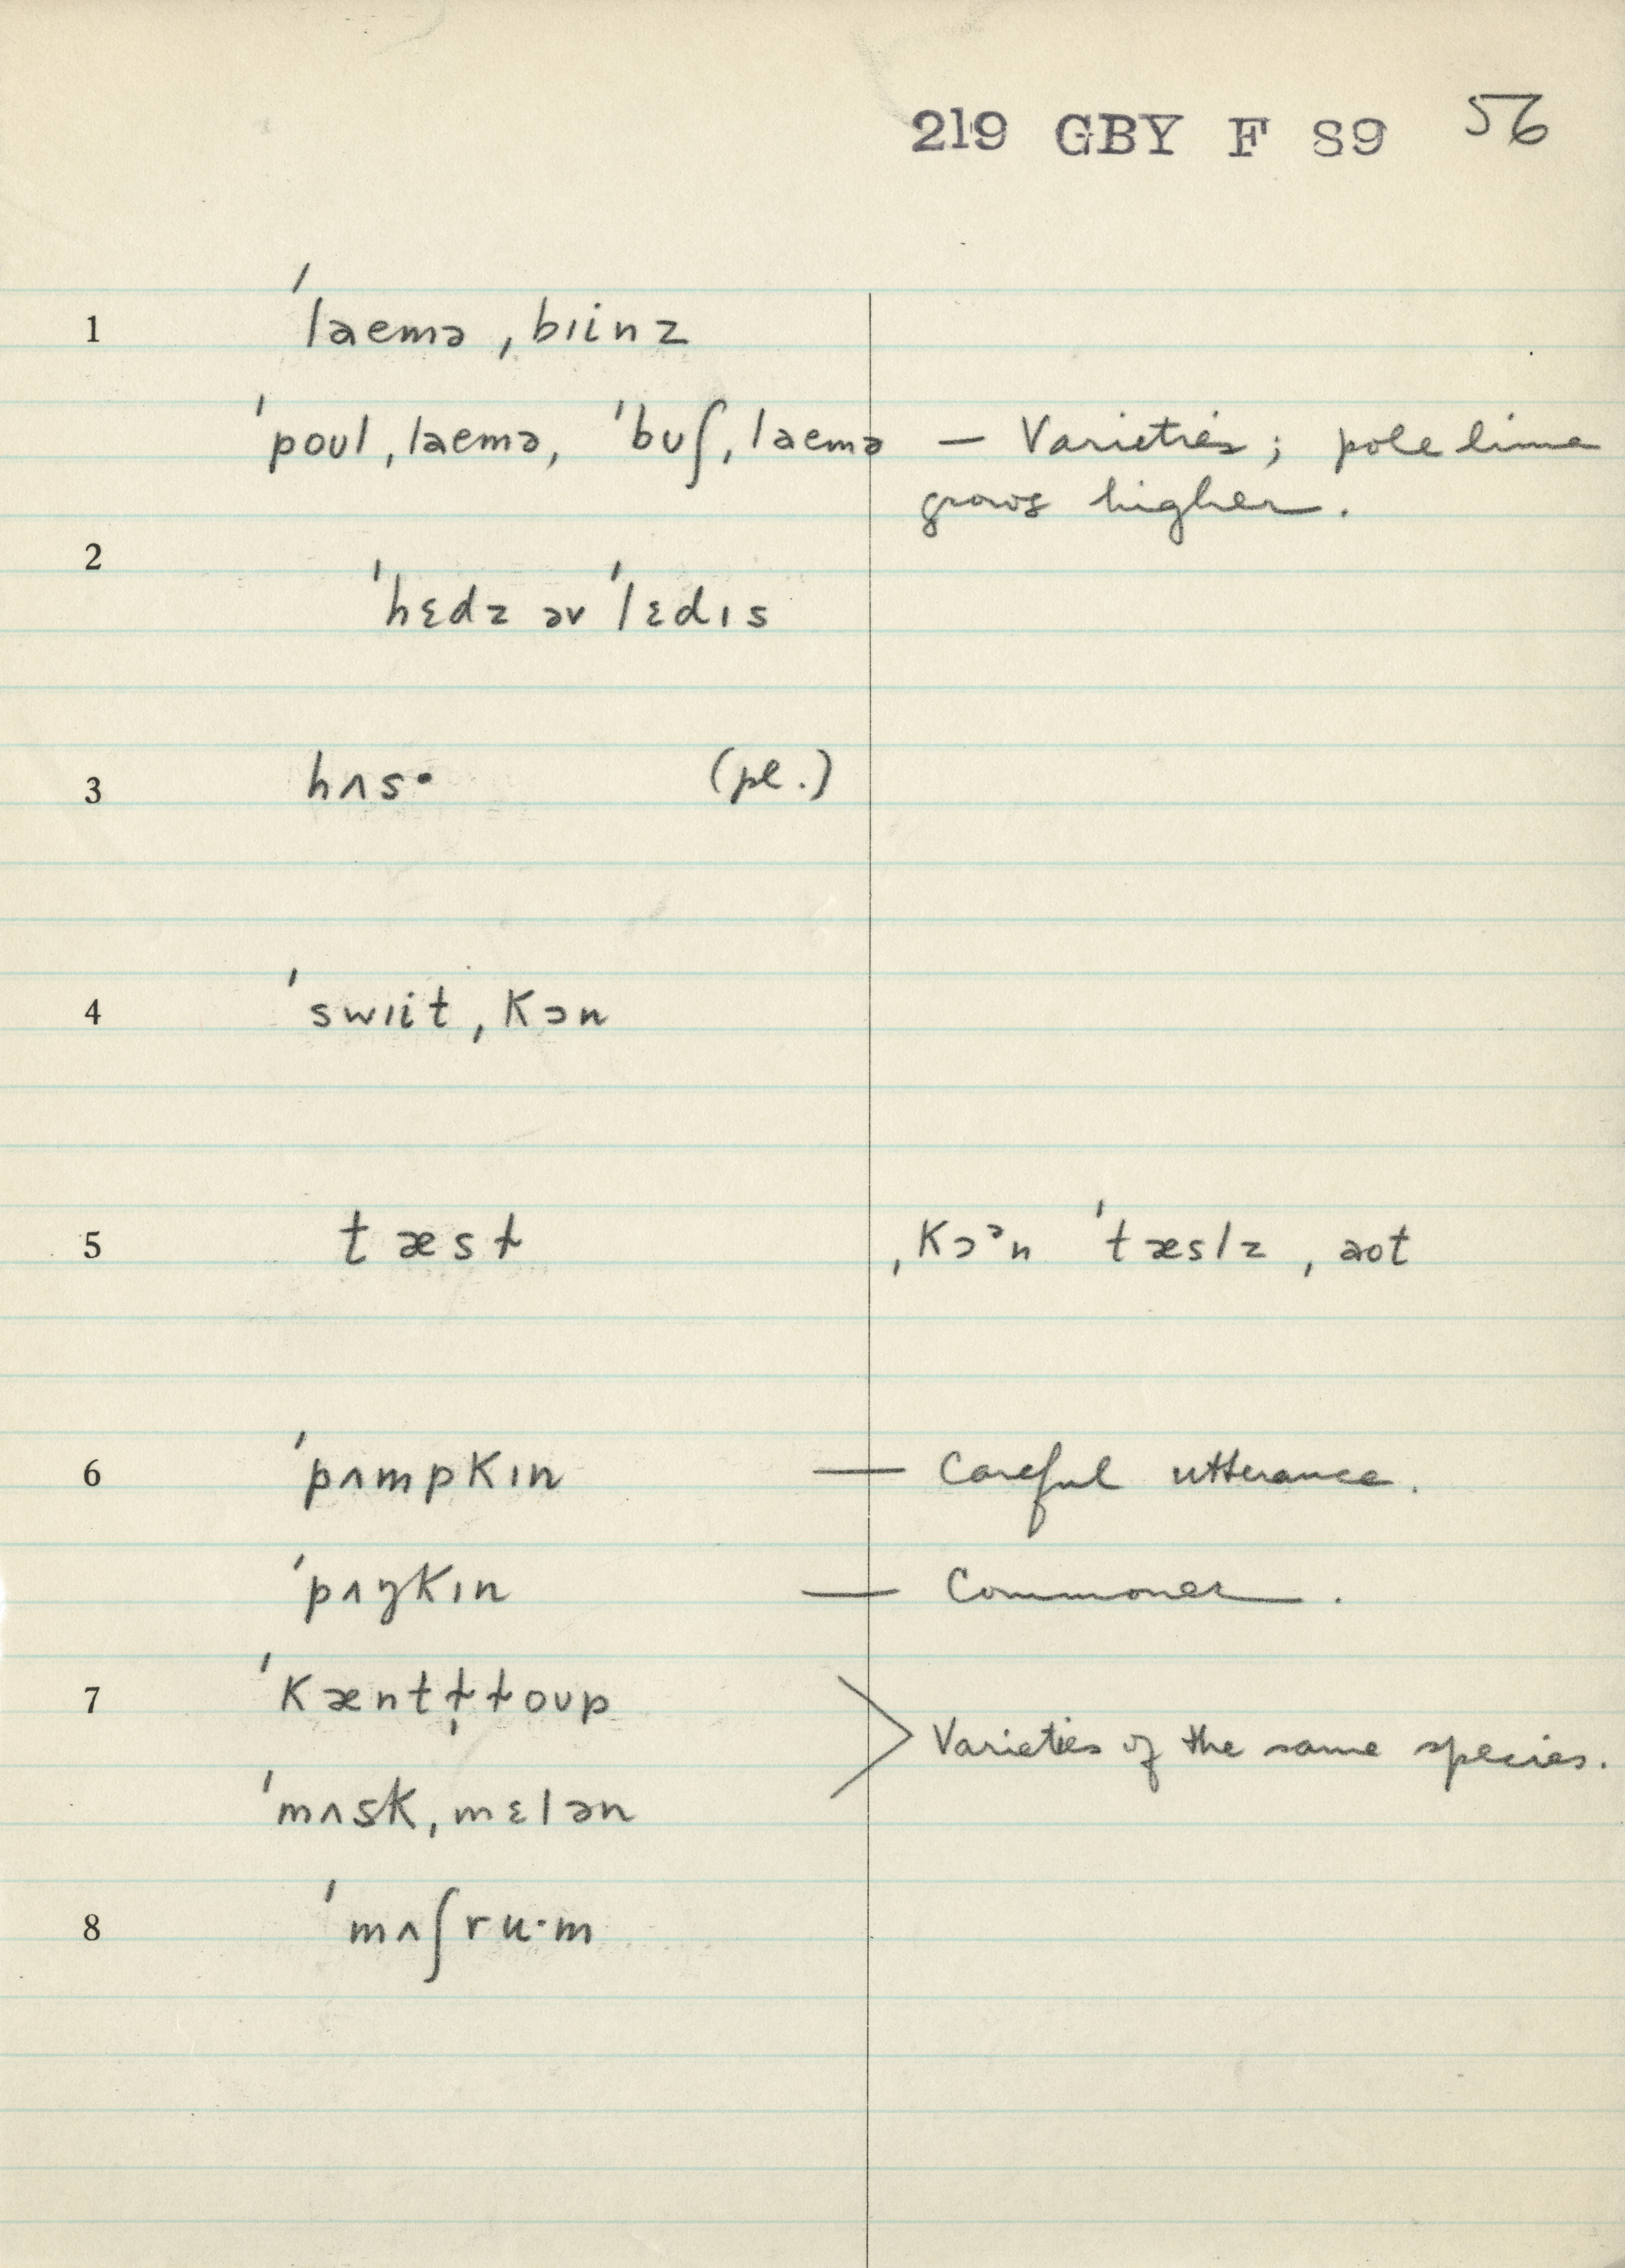 219 GBY F S9 56
1 ˈlaemə ˌbɪinz
ˈpoʊl ˌlaemə, ˈbʊʃ ˌlaemə — Varieties; pole lima
grows higher.
2
ˈhɛdz əv ˈlɛdɪs
3 hʌs· (pl.)
4 ˈswɪit ˌkɔn
5 tæsɫ ˌkɔᵊn ˈtæslz ˌaot
6 ˈpʌmpkɪn — Careful utterance.
ˈpʌŋkɪn — Commoner.
7 ˈkæntɫ̩ɫoʊp
> Varieties of the same species.
ˈmʌsk ˌmɛlən
8 ˈmʌʃru·m